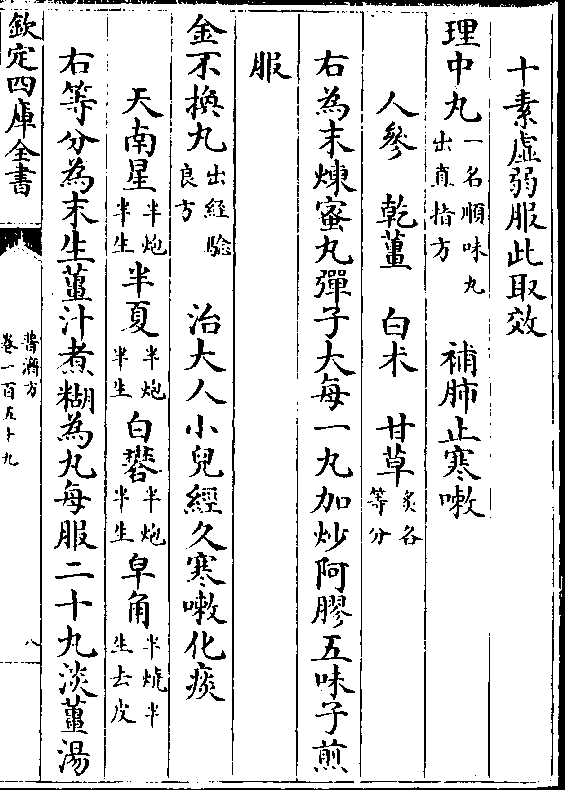 十素虛弱服此取效
理中丸一名順味丸出直指方 補肺止寒嗽
人參 乾薑 白术 甘草炙各等分
右為末煉蜜丸彈子大每一丸加炒阿膠五味子煎
服
金不換丸出經驗良方 治大人小兒經久寒嗽化痰
天南星半炮半生半夏半炮半生白礬半炮半生皁角半燒半生去皮
右等分為末生薑汁煮糊為丸每服二十丸淡薑湯
欽定四庫全書
普濟方
卷一百五十九
八